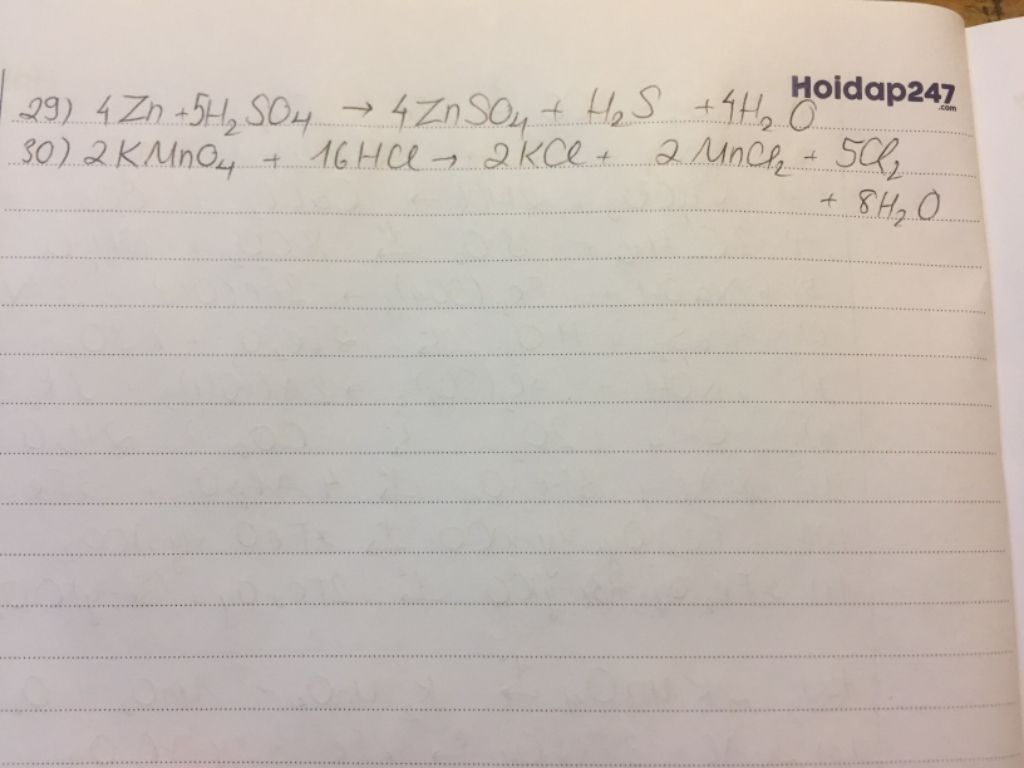 Hoidap247
.com
29) 4Zn + 5H₂SO₄ → 4ZnSO₄ + H₂S + 4H₂O
30) 2KMnO₄ + 16HCl → 2KCl + 2MnCl₂ + 5Cl₂
+ 8H₂O